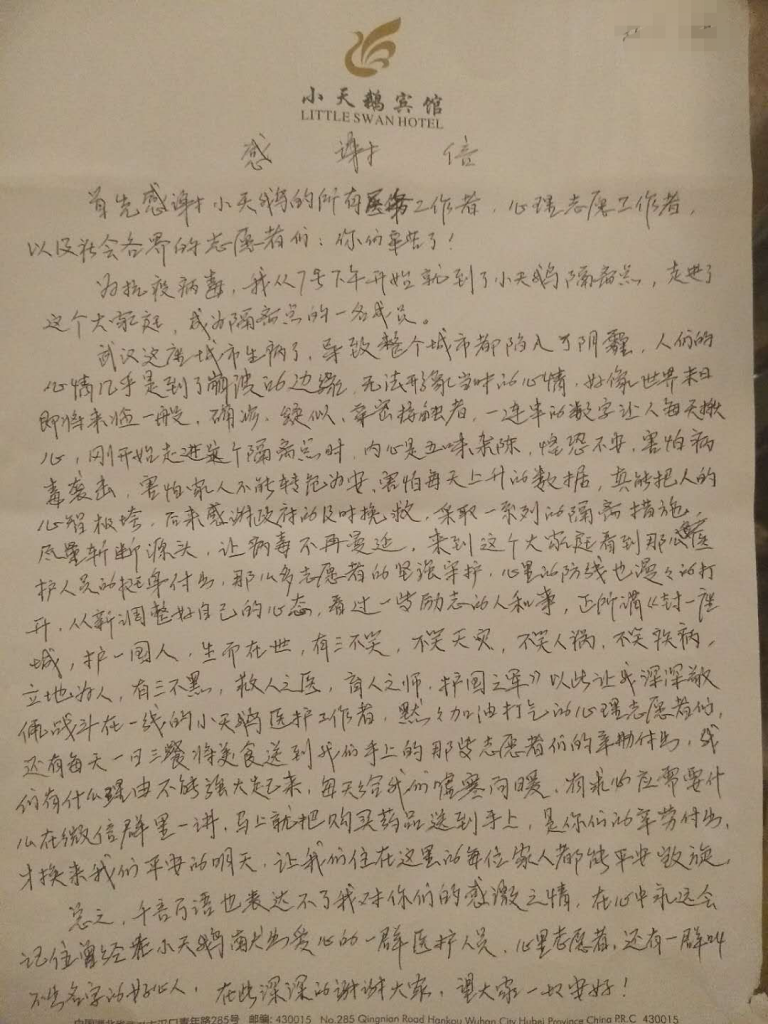 小天鹅宾馆
LITTLE SWAN HOTEL
感谢信
首先感谢小天鹅的所有医务工作者,心理志愿工作者,
以及社会各界的志愿者们:你们辛苦了!
为抗疫病毒,我从7号下午开始就到了小天鹅隔离点,走进了
这个大家庭,成为隔离点的一名成员。
武汉这座城市生病了,导致整个城市都陷入了阴霾,人们的
心情几乎是到了崩溃的边缘,无法形容当时的心情,好像世界末日
即将来临一般,确诊、疑似、密密接触者,一连串的数字让人每天揪
心,刚开始走进这个隔离点时,内心是五味杂陈,惶恐不安,害怕病
毒袭击,害怕家人不能转危为安、害怕每天上升的数据,真能把人的
心智极垮,后来感谢政府的及时挽救,采取一系列的隔离措施,
尽量斩断源头,让病毒不再蔓延,来到这个大家庭看到那么医
护人员的挺身付出,那么多志愿者的坚强守护,心里的防线也慢々的打
开,从新调整好自己的心态,看过一些励志的人和事,正所谓《封一座
城,护一国人,生而在世,有三不笑,不笑天灾,不笑人祸,不笑疾病,
立地为人,有三不黑,救人之医,育人之师,护国之军》以此让我深深敬
佩战斗在一线的小天鹅医护工作者,默々加油打气的心理志愿者们,
还有每天一日三餐将美食送到我们手上的那些志愿者们的辛勤付出,我
们有什么理由不能强大起来,每天给我们嘘寒问暖,有求必应需要什
么在微信群里一讲,马上就把购买药品送到手上,是你们的辛劳付出,
才换来我们平安的明天,让我们住在这里的每位家人都能平安凯旋。
总之,千言万语也表达不了我对你们的感激之情,在心中永远会
记住曾经在小天鹅献出爱心的一群医护人员,心里志愿者,还有一群叫
不出名字的好心人,在此深深的谢谢大家,望大家一切安好!
中国湖北省武汉市汉口青年路285号 邮编: 430015 No.285 Qingnian Road Hankou Wuhan City Hubei Province China P.R.C 430015